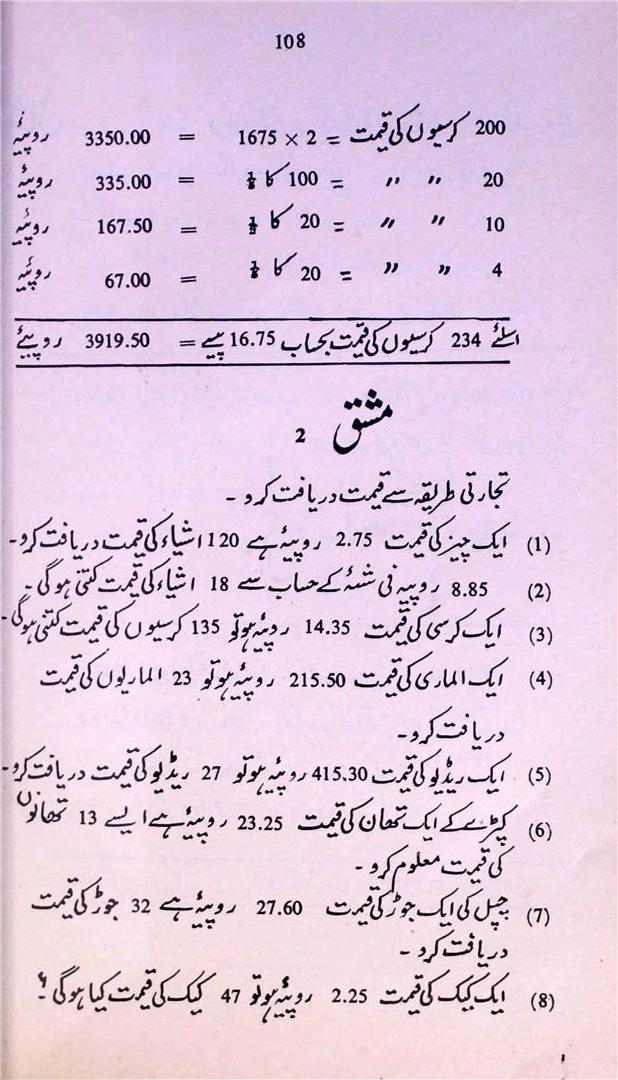 108
200 کرسیوں کی قیمت = 1675 × 2 = 3350.00 روپیۂ
20 〃 〃 = 100 کا ⅕ = 335.00 روپیۂ
10 〃 〃 = 20 کا ½ = 167.50 روپیۂ
4 〃 〃 = 20 کا ⅕ = 67.00 روپیۂ
اسلئے 234 کرسیوں کی قیمت بحساب 16.75 پیسے = 3919.50 روپیئے
مشق 2
تجارتی طریقہ سے قیمت دریافت کرو ۔
(1) ایک چیز کی قیمت 2.75 روپیۂ ہے 120 اشیاء کی قیمت دریافت کرو۔
(2) 8.85 روپیہ فی شئۂ کے حساب سے 18 اشیاء کی قیمت کتنی ہوگی ۔
(3) ایک کرسی کی قیمت 14.35 روپیۂ ہو تو 135 کرسیوں کی قیمت کتنی ہوگی ۔
(4) ایک الماری کی قیمت 215.50 روپیۂ ہو تو 23 الماریوں کی قیمت
دریافت کرو۔
(5) ایک ریڈیو کی قیمت 415.30 روپیۂ ہو تو 27 ریڈیو کی قیمت دریافت کرو۔
(6) کپڑے کے ایک تھان کی قیمت 23.25 روپیۂ ہے ایسے 13 تھانوں
کی قیمت معلوم کرو ۔
(7) چپل کی ایک جوڑ کی قیمت 27.60 روپیۂ ہے 32 جوڑ کی قیمت
دریافت کرو ۔
(8) ایک کیک کی قیمت 2.25 روپیۂ ہو تو 47 کیک کی قیمت کیا ہوگی ؟